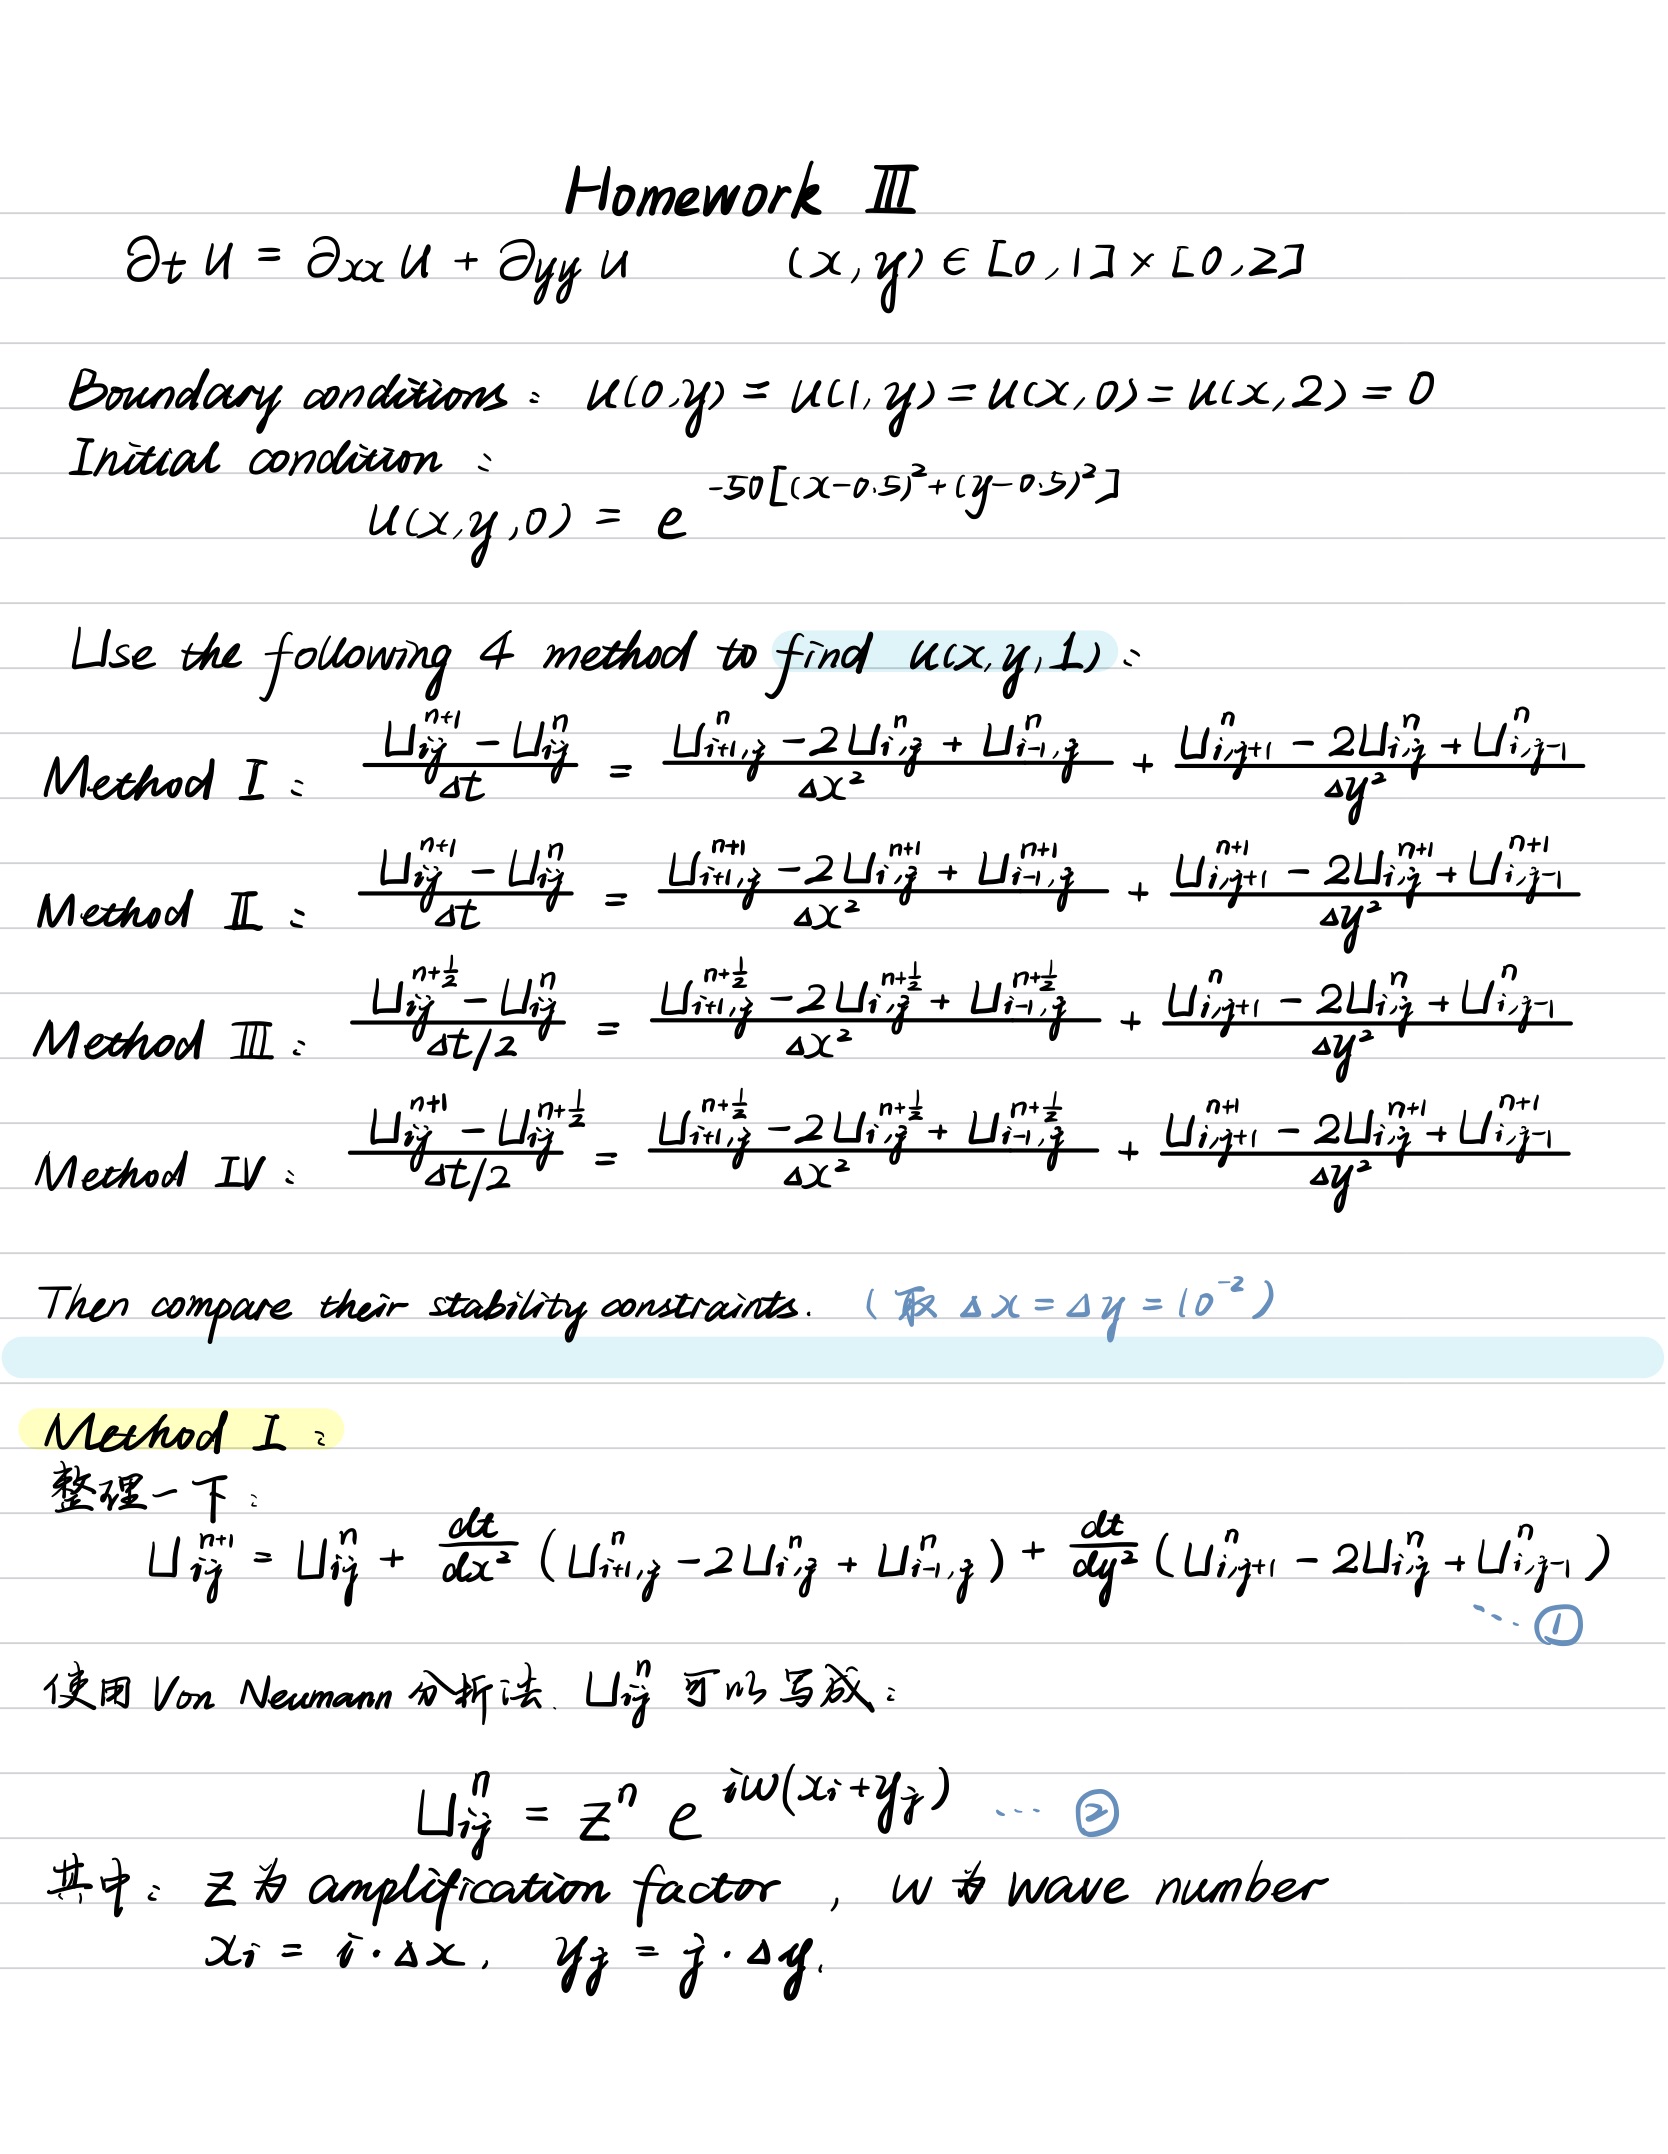 Homework Ⅲ
∂t u = ∂xx u + ∂yy u (x, y) ∈ [0, 1] × [0, 2]
Boundary conditions: u(0,y) = u(1,y) = u(x,0) = u(x,2) = 0
Initial condition:
u(x,y,0) = e^{-50[(x-0.5)^2+(y-0.5)^2]}
Use the following 4 method to find u(x,y,1):
Method Ⅰ: \frac{U_{ij}^{n+1} - U_{ij}^{n}}{Δt} = \frac{U_{i+1,j}^{n} - 2U_{i,j}^{n} + U_{i-1,j}^{n}}{Δx^2} + \frac{U_{i,j+1}^{n} - 2U_{i,j}^{n} + U_{i,j-1}^{n}}{Δy^2}
Method Ⅱ: \frac{U_{ij}^{n+1} - U_{ij}^{n}}{Δt} = \frac{U_{i+1,j}^{n+1} - 2U_{i,j}^{n+1} + U_{i-1,j}^{n+1}}{Δx^2} + \frac{U_{i,j+1}^{n+1} - 2U_{i,j}^{n+1} + U_{i,j-1}^{n+1}}{Δy^2}
Method Ⅲ: \frac{U_{ij}^{n+\frac{1}{2}} - U_{ij}^{n}}{Δt/2} = \frac{U_{i+1,j}^{n+\frac{1}{2}} - 2U_{i,j}^{n+\frac{1}{2}} + U_{i-1,j}^{n+\frac{1}{2}}}{Δx^2} + \frac{U_{i,j+1}^{n} - 2U_{i,j}^{n} + U_{i,j-1}^{n}}{Δy^2}
Method Ⅳ: \frac{U_{ij}^{n+1} - U_{ij}^{n+\frac{1}{2}}}{Δt/2} = \frac{U_{i+1,j}^{n+\frac{1}{2}} - 2U_{i,j}^{n+\frac{1}{2}} + U_{i-1,j}^{n+\frac{1}{2}}}{Δx^2} + \frac{U_{i,j+1}^{n+1} - 2U_{i,j}^{n+1} + U_{i,j-1}^{n+1}}{Δy^2}
Then compare their stability constraints. (取 Δx = Δy = 10^{-2})
Method Ⅰ:
整理一下:
U_{ij}^{n+1} = U_{ij}^{n} + \frac{dt}{dx^2} (U_{i+1,j}^{n} - 2U_{i,j}^{n} + U_{i-1,j}^{n}) + \frac{dt}{dy^2} (U_{i,j+1}^{n} - 2U_{i,j}^{n} + U_{i,j-1}^{n})
... ①
使用 Von Neumann 分析法. U_{ij}^{n} 可以写成:
U_{ij}^{n} = z^n e^{iw(x_i+y_j)} ... ②
其中: z 为 amplification factor , w 为 wave number
x_i = i·Δx, y_j = j·Δy.